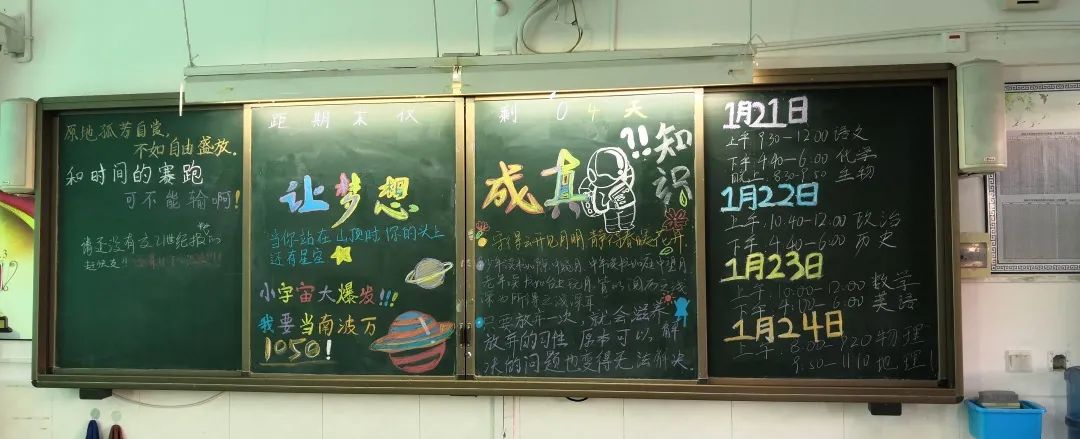 原地孤芳自赏,
不如自由盛放.
和时间的赛跑
可不能输啊!
请还没有交21世纪报的
赶快交!!
距期末仅
让梦想
当你站在山顶时你的头上
还有星空
小宇宙大爆发!!!
我要当南波万
1050!
剩04天
成真
!!知识
守得云开见月明 静待春暖花开.
深为所得之浅深耳
只要放弃一次,就会滋养
放弃的习性,原本可以解
决的问题也变得无法解决.
1月21日
上午 9:30-12:00 语文
下午 4:40-6:00 化学
晚上 8:30-9:50 生物
1月22日
上午. 10:40-12:00 政治
下午. 4:40-6:00 历史
1月23日
上午. 10:00-12:00 数学
下午. 4:00-6:00 英語
1月24日
上午. 8:00-9:20 物理
9:50-11:10 地理!